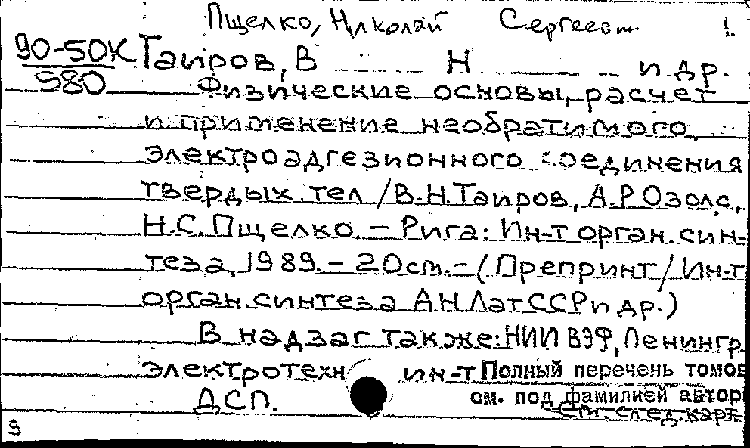 Пщелко, Николай Сергеев. 1.
90-50К Таиров, В Н и др.
980 Физические основы, расчет
и применение необратимого
электроадгезионного соединения
твердых тел /В.Н.Таиров, А.Р.Озолс,
Н.С.Пщелко – Рига: Ин-т орган. син-
теза, 1989. – 20 ст. – (Препринт / Ин-т
орган. синтеза АН ЛатССР и др.)
В надзаг также: НИИ ВЭФ, Ленингр.
электротехн ин-т Полный перечень томов
ДСП. см. под фамилией автора
См. след. карт.
9